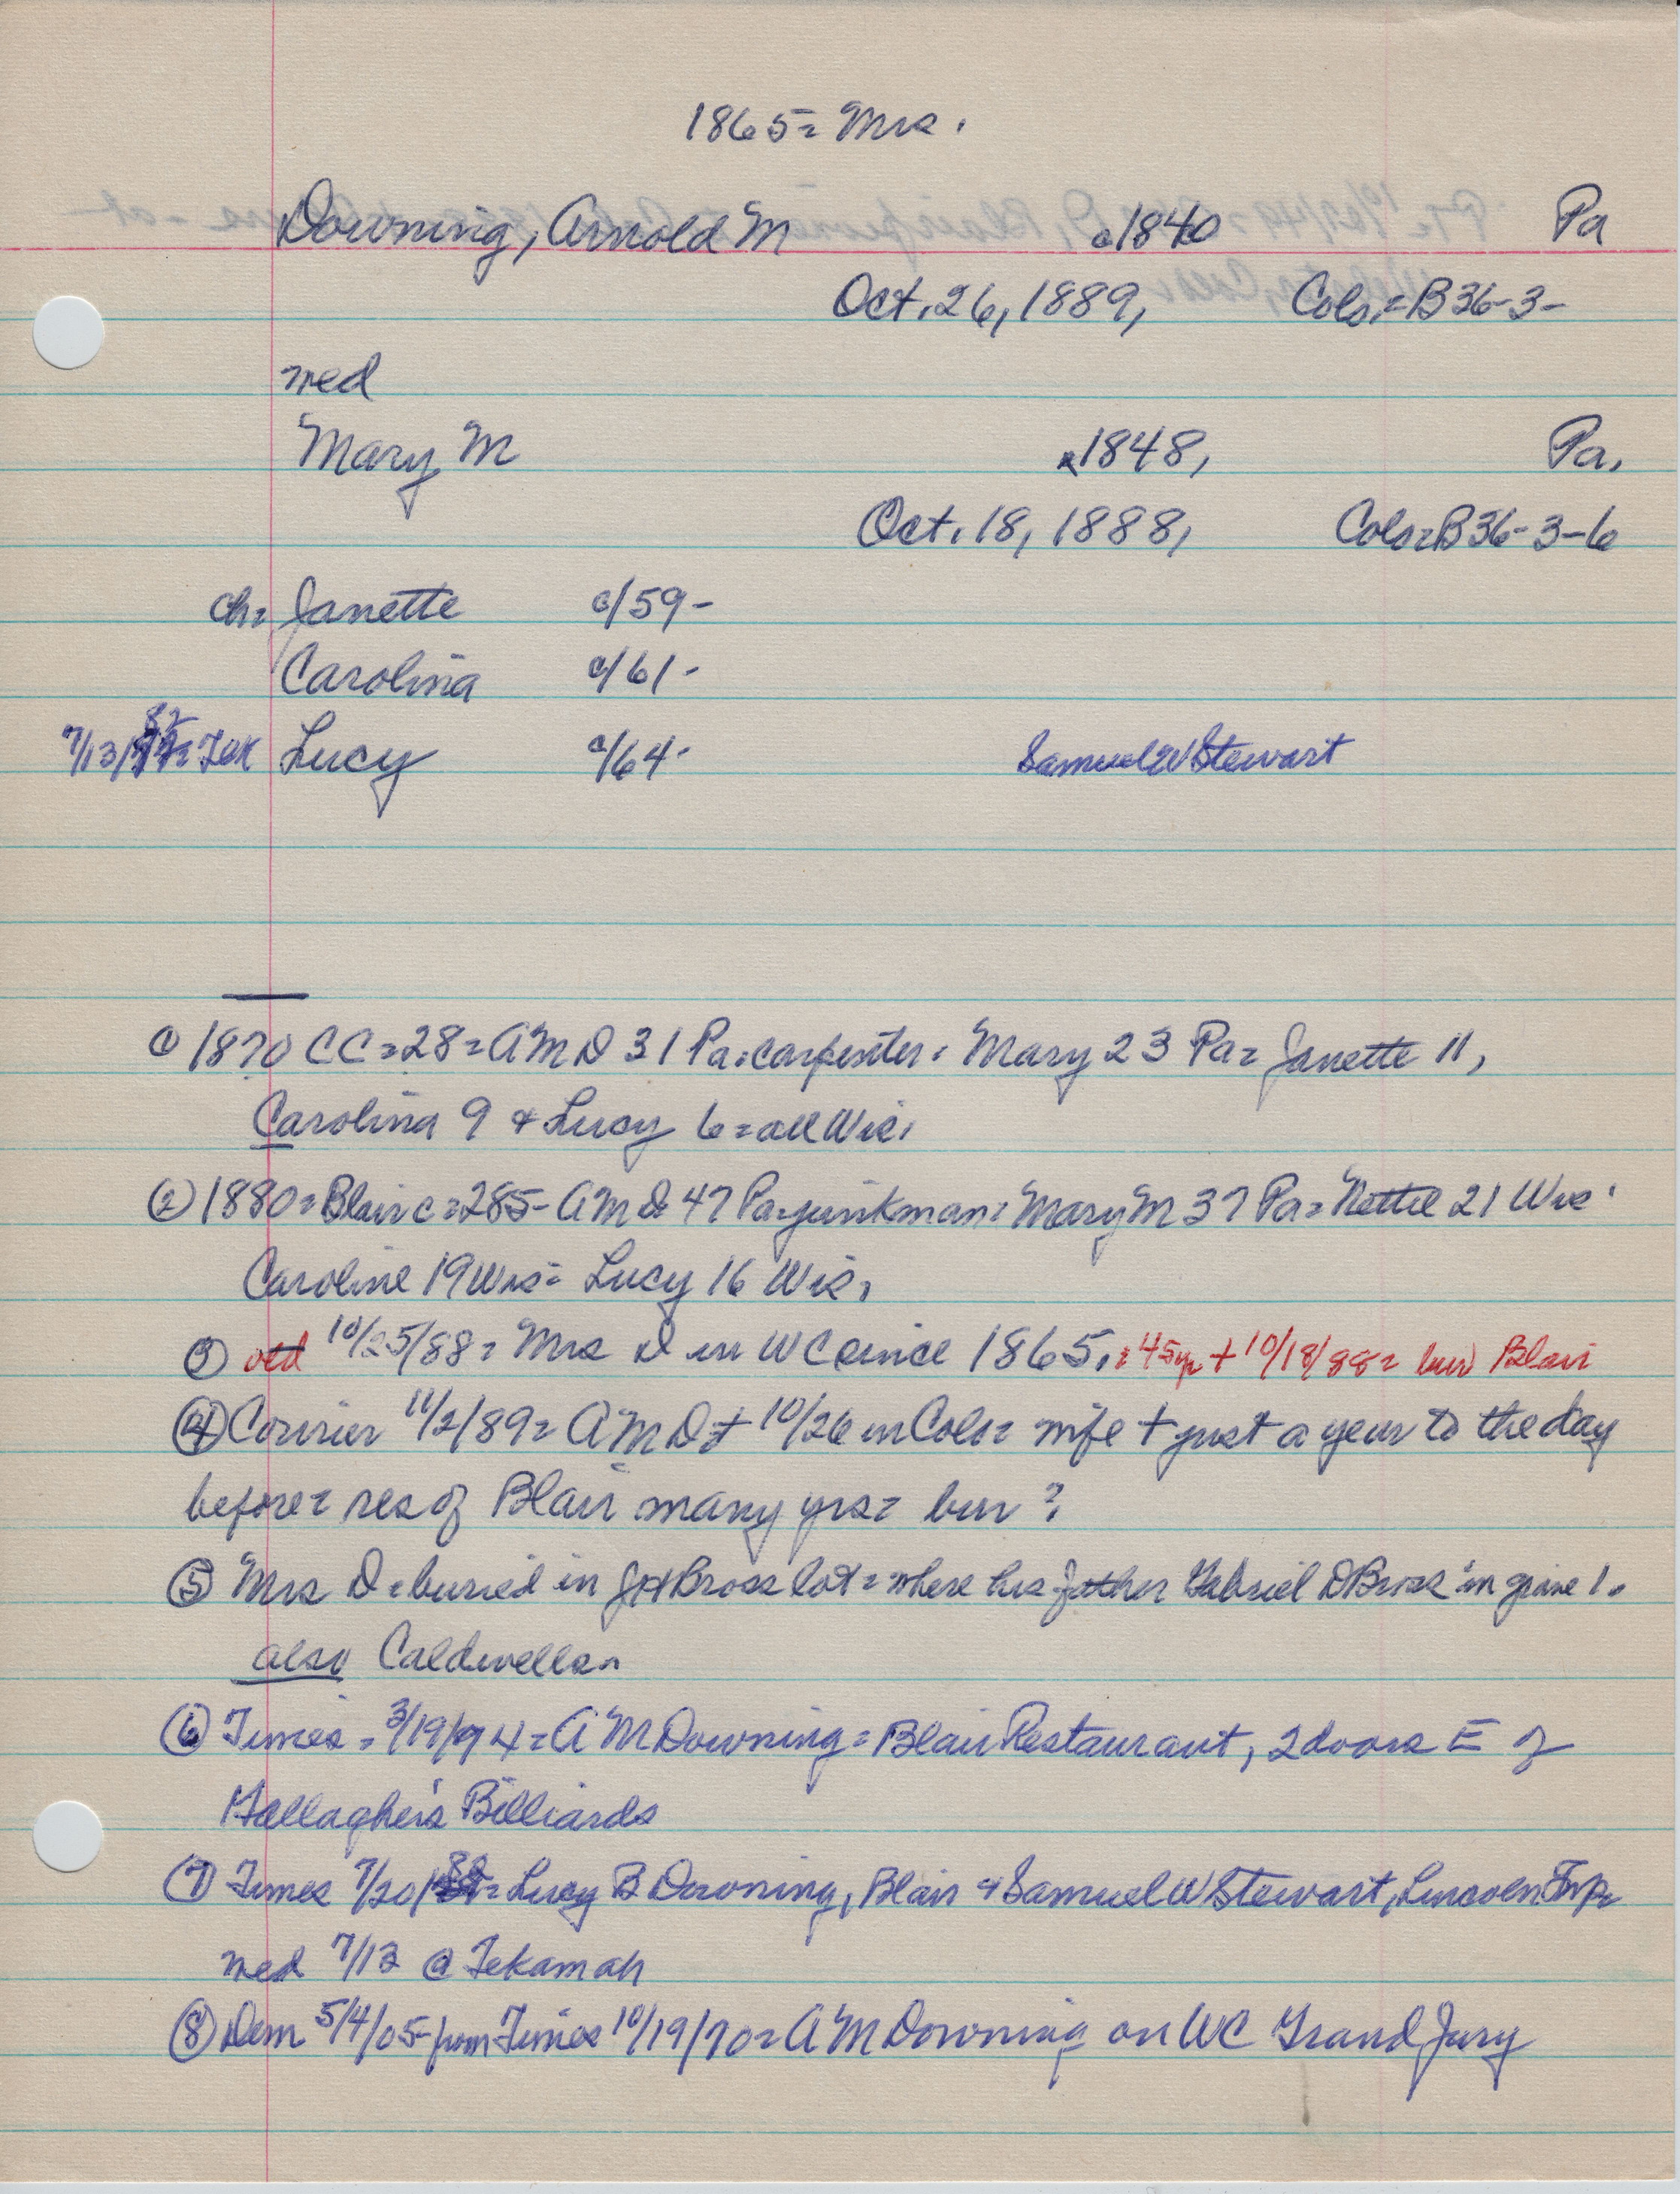 1865= Mrs.
Downing, Arnold M c1840 Pa
Oct. 26, 1889, Colo.=B36-3-
med
Mary M c1848, Pa.
Oct. 18, 1888, Colo=B36-3-6
ch= Janette c/59-
Carolina c/61-
7/13/82= Tek Lucy c/64- Samuel W Stewart
① 1870 CC=28=AMD 31 Pa=carpenter= Mary 23 Pa= Janette 11,
Carolina 9 & Lucy 6=all Wis.
② 1880=Blair c=285- AMD 47 Pa=junkman= Mary M 37 Pa= Nettie 21 Wis'
Caroline 19 Wis= Lucy 16 Wis.
③ 10/25/88= Mrs D in WC since 1865.=45yr + 10/18/88= bur Blair
④ Courier 11/2/89= AMD + 10/26 in Colo= wife + just a year to the day
before= res of Blair many yrs= bur ?
⑤ Mrs D=buried in Bross lot=where his father Gabriel D Bross in grave 1.
also Caldwells.
⑥ Times = 3/19/74=A M Downing=Blair Restaurant, 2 doors E of
Gallagher's Billiards
⑦ Times 7/20/82= Lucy B Downing, Blair & Samuel W Stewart, Lincoln Twp=
med 7/13 @ Tekamah
⑧ Dem 5/4/05-from Times 10/19/70= A M Downing on WC Grand Jury